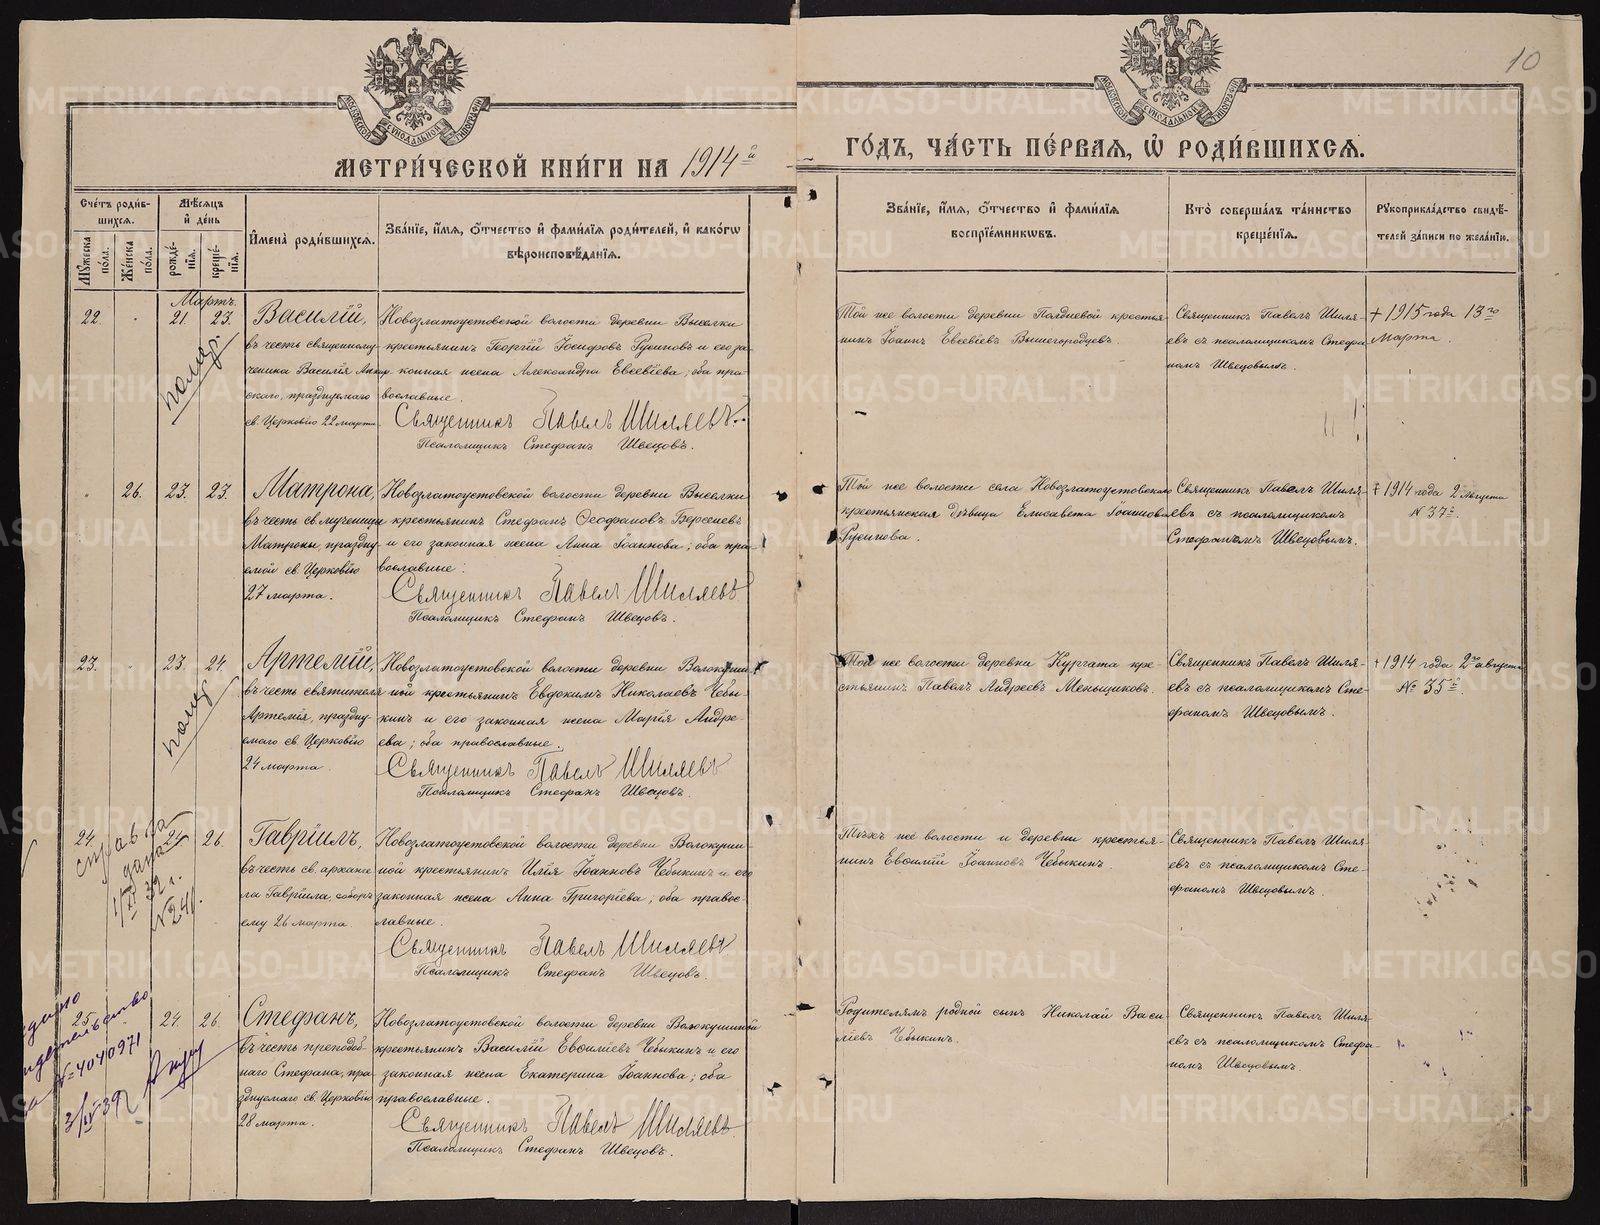 10
МОСКОВСКОЙ СѴНОДАЛЬНОЙ ТИПОГРАФІИ
МОСКОВСКОЙ СѴНОДАЛЬНОЙ ТИПОГРАФІИ
МЕТРИ́ЧЕСКОЙ КНИ́ГИ НА 1914й
ГО́ДЪ, ЧА́СТЬ ПЕ́РВАЯ, Ѡ РОДИ́ВШИХСЯ.
Сче́тъ роди́в-
шихся.
Мѣ́сяцъ
и де́нь
Му́жеска по́ла.
Же́нска по́ла.
рожде́-
нія.
креще́-
нія.
И҆мена̀ роди́вшихся.
Зва́ніе, и҆́мя, ѻ҆́тчество и҆ фами́лія роди́телей, и҆ како́гѡ
вѣроисповѣ́данія.
Зва́ніе, и҆́мя, ѻ҆́тчество и҆ фами́лія
воспріе́мникѡвъ.
Кто̀ соверша́лъ та́инство
креще́нія.
Рꙋкоприкла́дство свидѣ́-
телей за́писи по жела́нію.
Мартъ.
22. 21. 23.
Василій,
въ честь священному-
ченика Василія Анкир
скаго, празднуемаго
св. Церковію 22 марта.
Новозлатоустовской волости деревни Выселки
крестьянинъ Георгій Іосифовъ Русиновъ и его за-
конная жена Александра Евсевіева; оба пра-
вославные.
Священникъ Павелъ Шиляевъ.
Псаломщикъ Стефанъ Швецовъ.
Той же волости деревни Полдневой крестья-
нинъ Іоаннъ Евсевіевъ Вышегородцевъ.
Священникъ Павелъ Шиля-
евъ съ псаломщикомъ Стефа-
номъ Швецовымъ.
+ 1915 года 13го
Марта.
26. 23. 23.
Матрона,
въ честь св. мученицы
Матроны, праздну-
емой св. Церковію
27 марта.
Новозлатоустовской волости деревни Выселки
крестьянинъ Стефанъ Ѳеофановъ Берсеневъ
и его законная жена Анна Іоаннова; оба пра-
вославные.
Священникъ Павелъ Шиляевъ
Псаломщикъ Стефанъ Швецовъ.
Той же волости села Новозлатоустовскаго
крестьянская дѣвица Елисавета Іоаннова
Русинова.
Священникъ Павелъ Шиля-
евъ съ псаломщикомъ
Стефаномъ Швецовымъ.
+ 1914 года 2 Августа
№ 37й.
23. 23. 24.
Артемій,
въ честь святителя
Артемія, праздну-
емаго св. Церковію
24 марта.
Новозлатоустовской волости деревни Волокушин-
ной крестьянинъ Евдокимъ Николаевъ Чебы-
кинъ и его законная жена Марія Андре-
ева; оба православные.
Священникъ Павелъ Шиляевъ
Псаломщикъ Стефанъ Швецовъ.
Той же волости деревни Кургата кре-
стьянинъ Павелъ Андреевъ Меньщиковъ.
Священникъ Павелъ Шиля-
евъ съ псаломщикомъ Сте-
фаномъ Швецовымъ.
+ 1914 года 2го августа
№ 35й.
24 24 26.
справка
дана
№ 241.
Гавріилъ,
въ честь св. арханге
ла Гавріила, соборъ
ему 26 марта.
Новозлатоустовской волости деревни Волокушин-
ной крестьянинъ Илія Іоанновъ Чебыкинъ и его
законная жена Анна Григоріева; оба правос-
лавные.
Священникъ Павелъ Шиляевъ
Псаломщикъ Стефанъ Швецовъ.
Тѣхъ же волости и деревни крестья-
нинъ Евѳимій Іоанновъ Чебыкинъ.
Священникъ Павелъ Шиля-
евъ съ псаломщикомъ Сте-
фаномъ Швецовымъ.
25. 24. 26.
№ 4040971
Стефанъ,
въ честь преподоб-
наго Стефана, пра-
зднуемаго св. Церковію
28 марта.
Новозлатоустовской волости деревни Волокушинной
крестьянинъ Василій Евѳиміевъ Чебыкинъ и его
законная жена Екатерина Іоаннова; оба
православные.
Священникъ Павелъ Шиляевъ
Псаломщикъ Стефанъ Швецовъ.
Родителямъ родной сынъ Николай Васи
ліевъ Чебыкинъ.
Священникъ Павелъ Шиля-
евъ съ псаломщикомъ Стефа-
номъ Швецовымъ.
METRIKI.GASO-URAL.RU